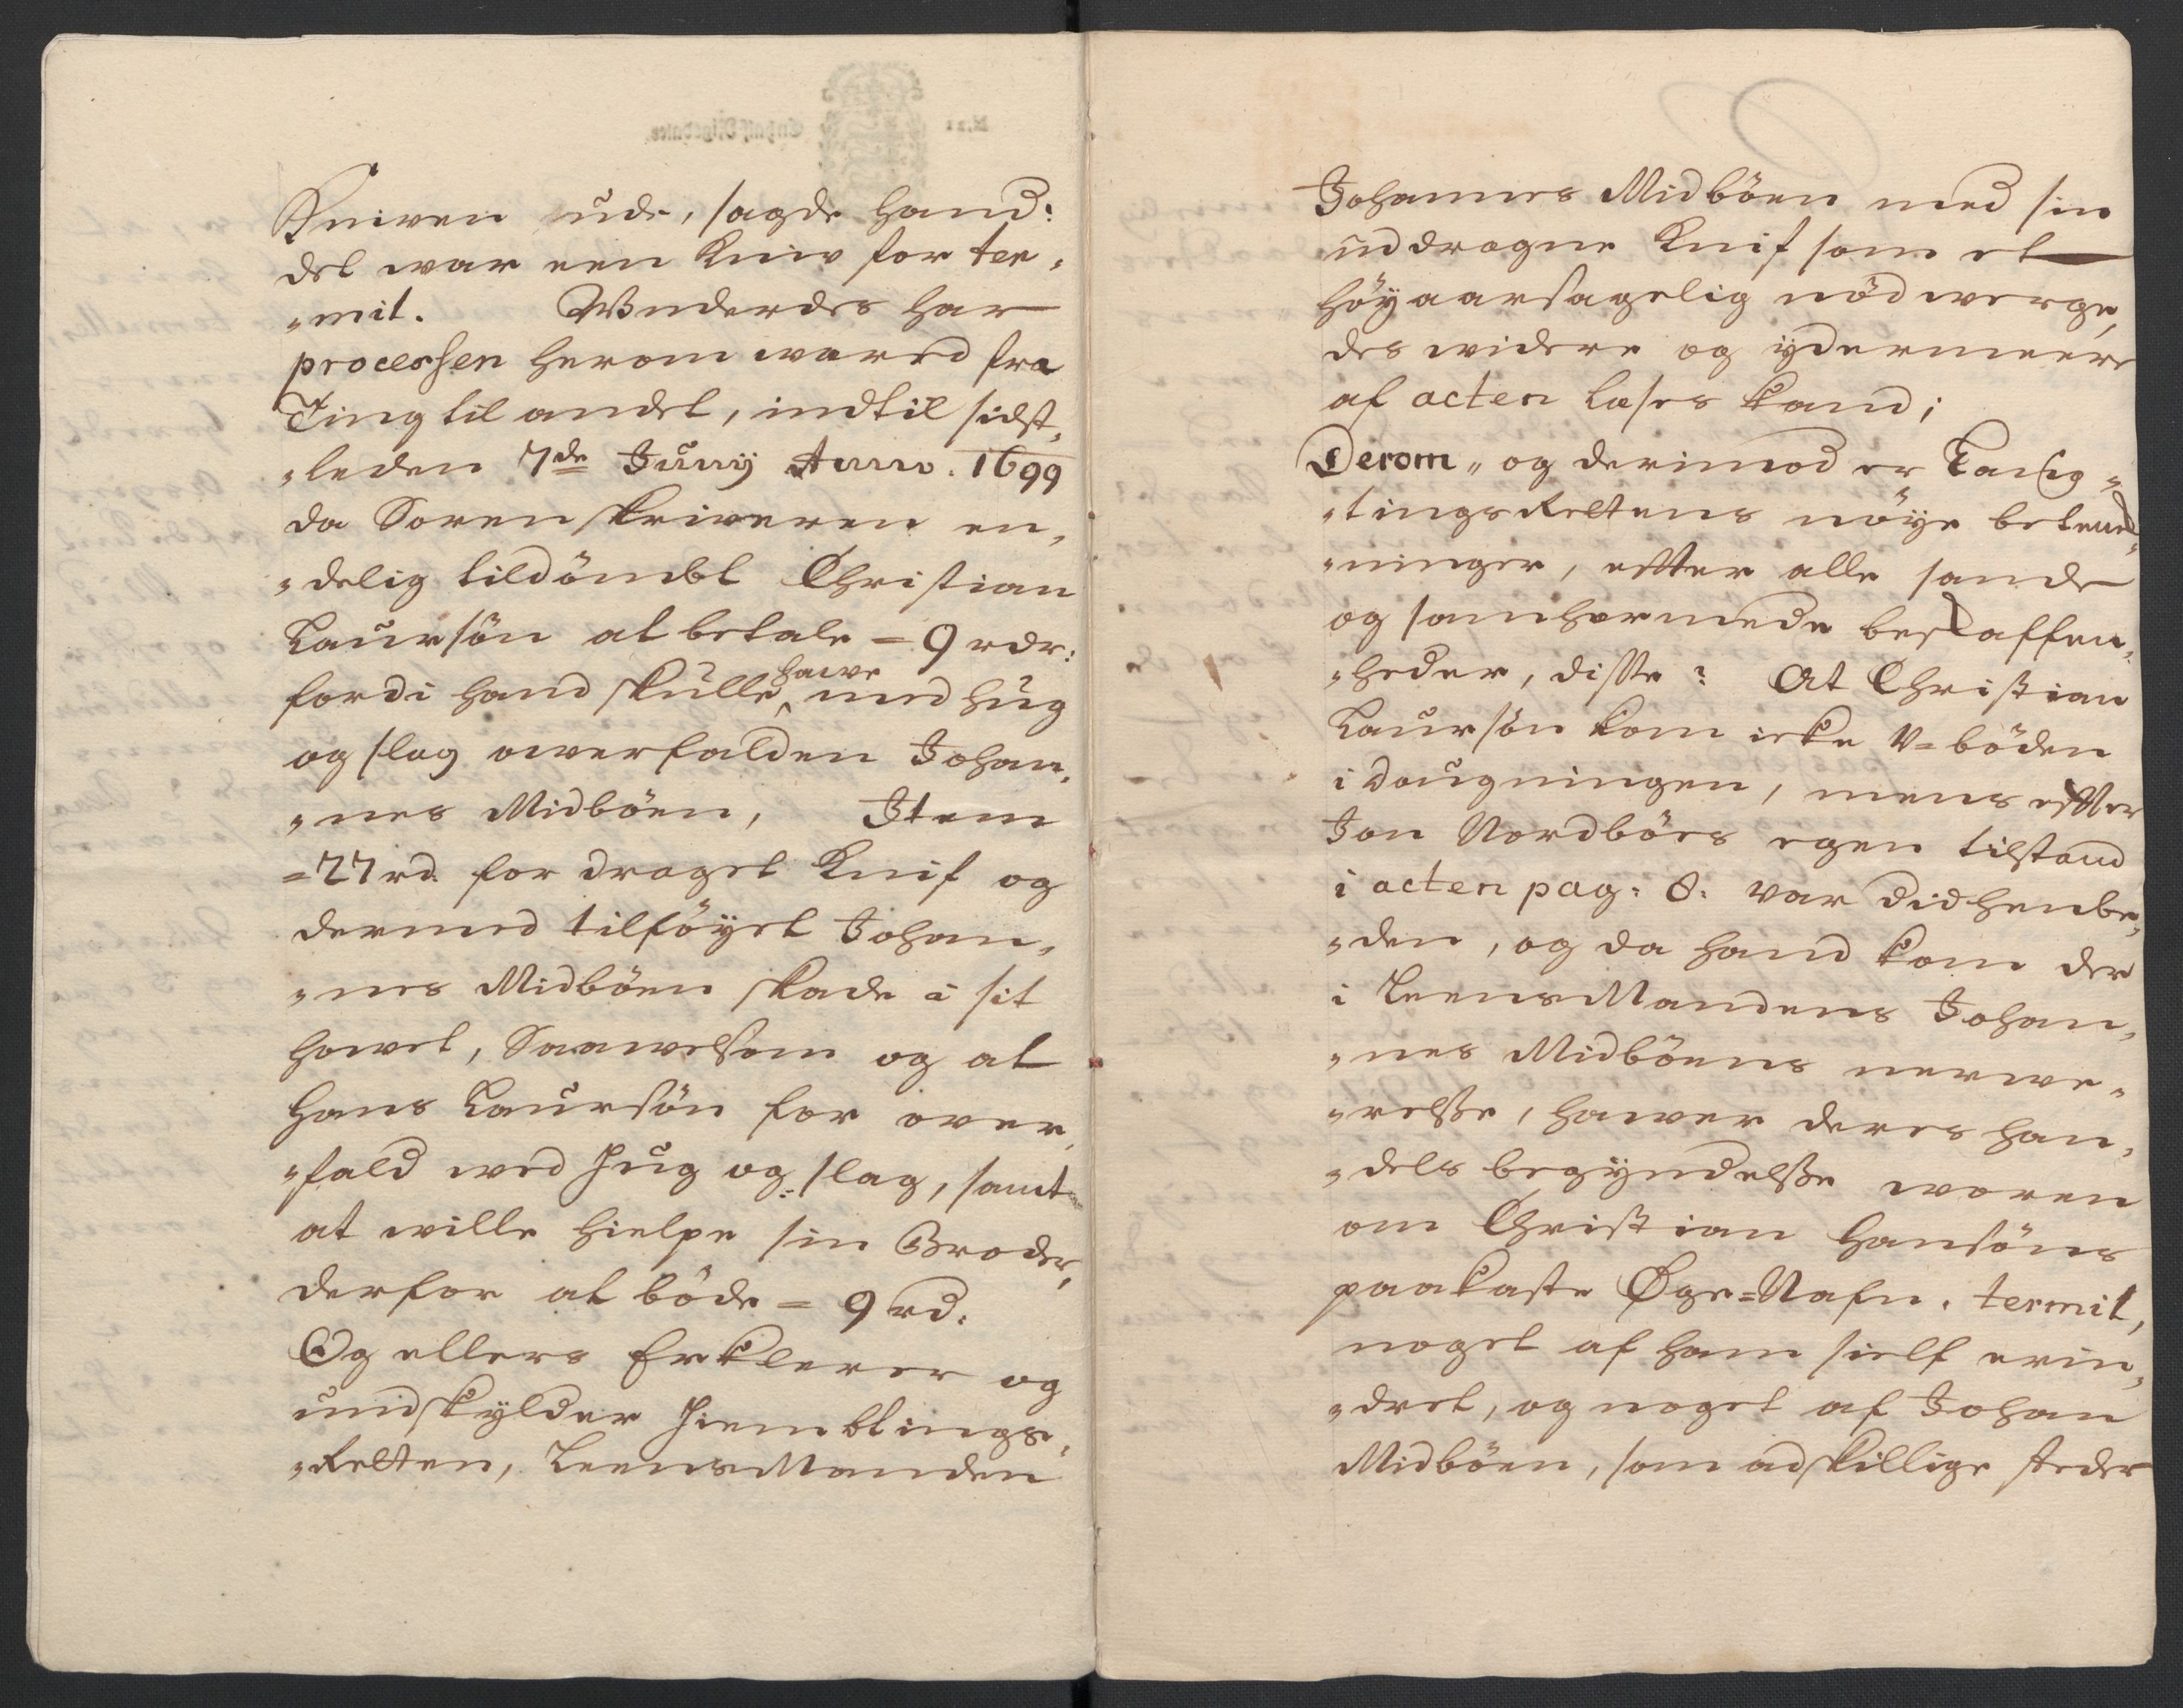 Kniven ude, sagde hand:
det war een Kniv for ter„
„mit. Wnderdes har
processen herom wared fra
Ting til andet, indtil sidst„
„leden 7de Juny Anno. 1699
da Sorenskriveren en„
„delig tildömbt Christian
Laursön at betale = 9 rdr:
fordi hand skulle hawe med hug
og slag owerfalden Johan„
„nes Midböen, Item
=27 rd. for draget Knif og
dermed tilföyet Johan„
„nes Midböen skade i sit
howet, Saawelsom og at
Hans Laursön for over„
„fald med Hug og slag, samt
at wille hielpe sin Broder,
derfor at böde = 9 rd:
Og ellers Erklerer og
undskylder Hiembtings„
„Retten, LeensManden
Johannes Midböen med sin
uddragne Knif som et
höyaarsagelig nödwerge,
des widere og ydermeere
af acten læses kand;
Derom„ og derimod er Laug„
„tingsRettens nöye betenk„
„ninger, effter alle sande
og sambhermede beskaffen„
„heder, disse: At Christian
Laursön kom icke V=böden
i daugningen, mens effter
Jon Nordböes egen tilstand
i acten pag: 8: var did henbe„
„den, og da hand kom der
i LeensMandens Johan„
„nes Midböens nerwe„
„relsse, hawer deres han„
„dels begyndelsse woren
om Christian Hansöns
paakaste Öge=Nafn. termit,
noget af ham sielf erin„
„dret, og noget af Johan
Midböen, som adskillige steder